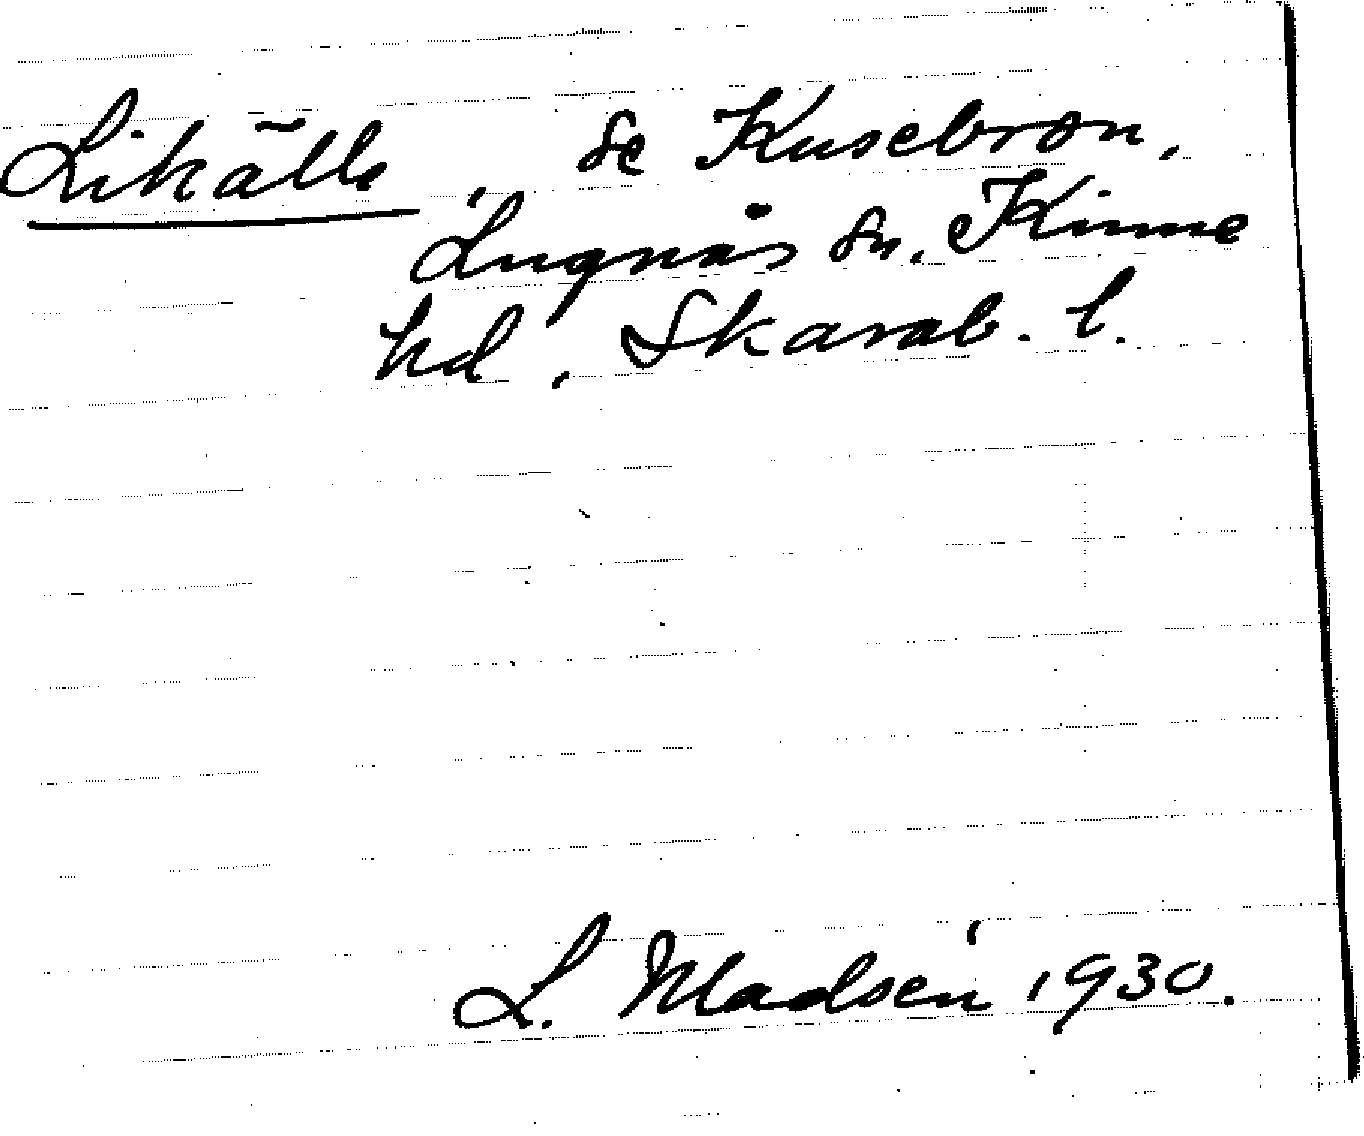 Likälle, se Kusebron,
Lugnås sn. Kinne
hd, Skarab. l.
L. Madsén 1930.